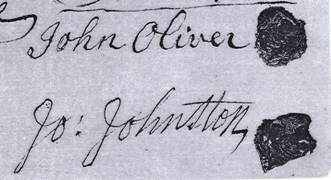 John Oliver
Jo: Johnston